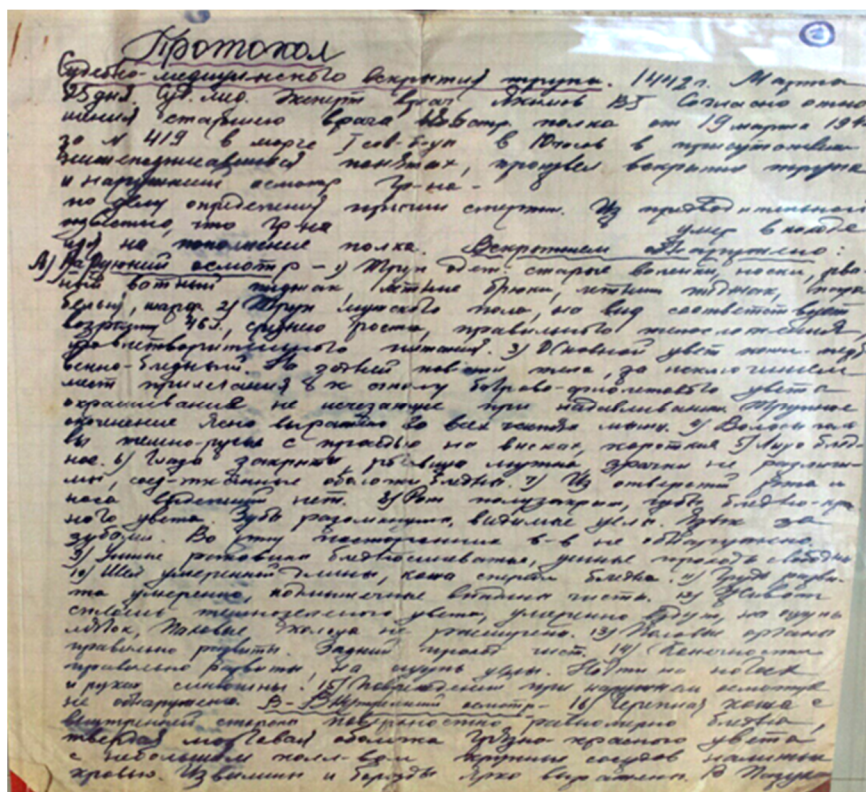 Протокол
Судебно-медицинского вскрытия трупа. 1942г. Марта
25 дня. Суд. мед. Эксперт врач Согласно отно
шения старшего врача стр. полка от 19 марта 194
за N 419 в морге в присутствии
нижеподписавшихся понятых, произвел вскрытие трупа
и наружный осмотр Гр-на -
по делу определения причин смерти. Из
известно, что Гр-на умер в походе
идя на пополнение полка. Вскрытием обнаружено:
А) Наружний осмотр - 1) Труп одет - старые валенки, носки, рва
ный ватный пиджак летние брюки, летний пиджак,
белье, шарф. 2) Труп мужского пола, на вид соответствует
возрасту 45л, среднего роста, правильного телосложения
удовлетворительного питания. 3) Основной цвет кожи
бледный. На задней поверхности тела, за исключением
мест прилегания багрово-фиолетового цвета
окрашивания не исчезающие при надавливании. Трупное
окоченение ясно выражено во всех мыш. 4) Волосы голо
вы темно-русые с проседью на висках, короткие 5) Лицо блед
ное. 6) Глаза закрыты, мутна, зрачки не различи
мы, соед-тканные оболочки бледны. 7) Из отверстий рта и
носа выделений нет. 8) Рот полузакрыт, губы бледно-кра
ного цвета. Зубы разомкнуты, видимые целы. Язык за
зубами. Во рту посторонних в-в не обнаружено.
9) Ушные раковины ушные проходы свободны
10) Шея умеренной длины, кожа спереди бледна. 11) Грудь разви
та умеренно, подмышечные впадины чиста. 12) Живот
темнозеленого цвета, умеренно вздут, на ощупь
мягок, Паховые кольца не расширены. 13) Половые органы
правильно развиты. Задний проход чист. 14) Конечности
правильно развиты, на ощупь целы. Ногти на ногах
и руках синюшны. 15) Повреждений при наружном осмотре
не обнаружено. В - Внутренний осмотр - 16) Черепная кожа с
внутренней стороны равномерно бледна,
твердая мозговая оболочка грязно-красного цвета
с небольшим колл-вом крупных сосудов налитых
кровью. Извилины и борозды ярко выражены. В